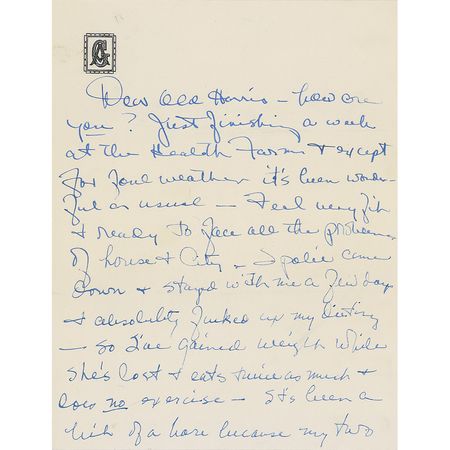 G
Dear Old Harris – how are
you? Just finishing a week
at the Health Farm & except
for foul weather it's been wonder-
ful as usual – Feel very fit
& ready to face all the problems
of house & City – Spolie came
down & stayed with me a few days
& absolutely fucked up my dieting
– so I've gained weight while
she's lost & eats twice as much &
does no exercise – It's been a
bit of a bore because my two